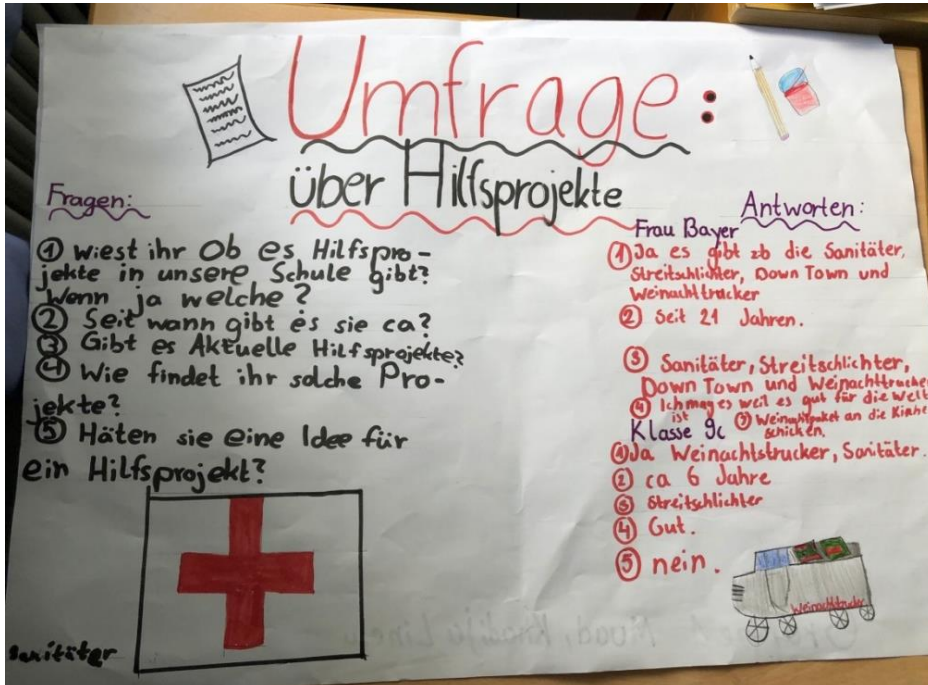 Umfrage:
über Hilfsprojekte
Fragen:
① wiest ihr Ob es Hilfspro-
jekte in unsere Schule gibt?
Wenn ja welche?
② Seit wann gibt es sie ca?
③ Gibt es Aktuelle Hilfsprojekte?
④ Wie findet ihr solche Pro-
jekte?
⑤ Häten sie eine Idee für
ein Hilfsprojekt?
Sanitäter
Antworten:
Frau Bayer
① Ja es gibt zb die Sanitäter,
Streitschlichter, Down Town und
Weinachttrucker
② Seit 21 Jahren.
③ Sanitäter, Streitschlichter,
Down Town und Weinachttrucker
④ Ich mag es weil es gut für die Welt
ist
⑤ an die
schicken.
Klasse 9c
① Ja Weinachtstrucker, Sanitäter.
② ca 6 Jahre
③ Streitschlichter
④ Gut.
⑤ nein.
Weinachttrucker